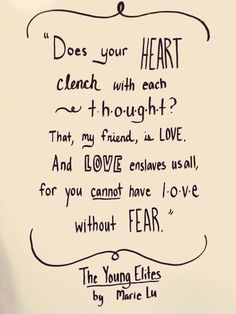 "Does your HEART
clench with each
~ t·h·o·u·g·h·t?
That, my friend, is LOVE.
And LOVE enslaves us all,
for you cannot have l·o·v·e
without FEAR."
The Young Elites
by Marie Lu